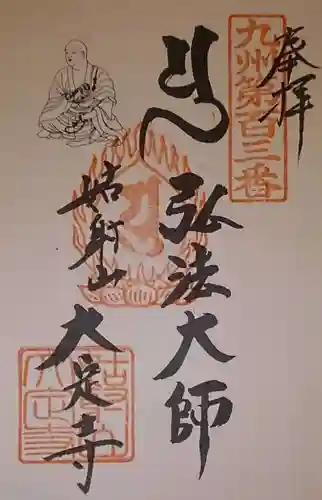 奉拝
九州第百三番
弘法大師
姑射山
大定寺